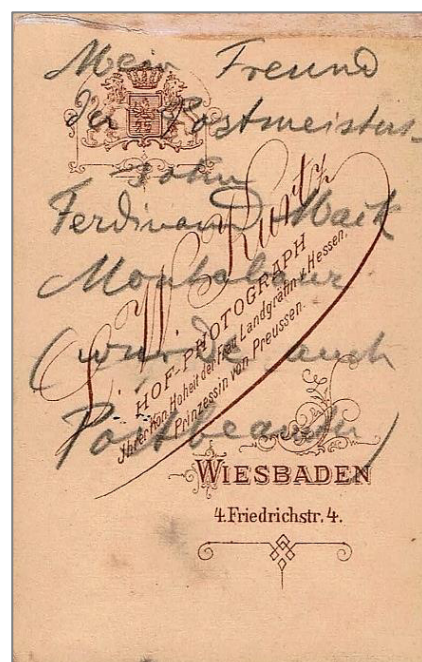 Mein Freund
der Postmeisters-
Sohn
Ferdinand Mack
Montabaur
(wurde auch
Postbeamter)
L. W. Kurtz
HOF-PHOTOGRAPH
Ihrer Kön. Hoheit der Frau Landgräfin v. Hessen,
Prinzessin von Preussen.
WIESBADEN
4. Friedrichstr. 4.